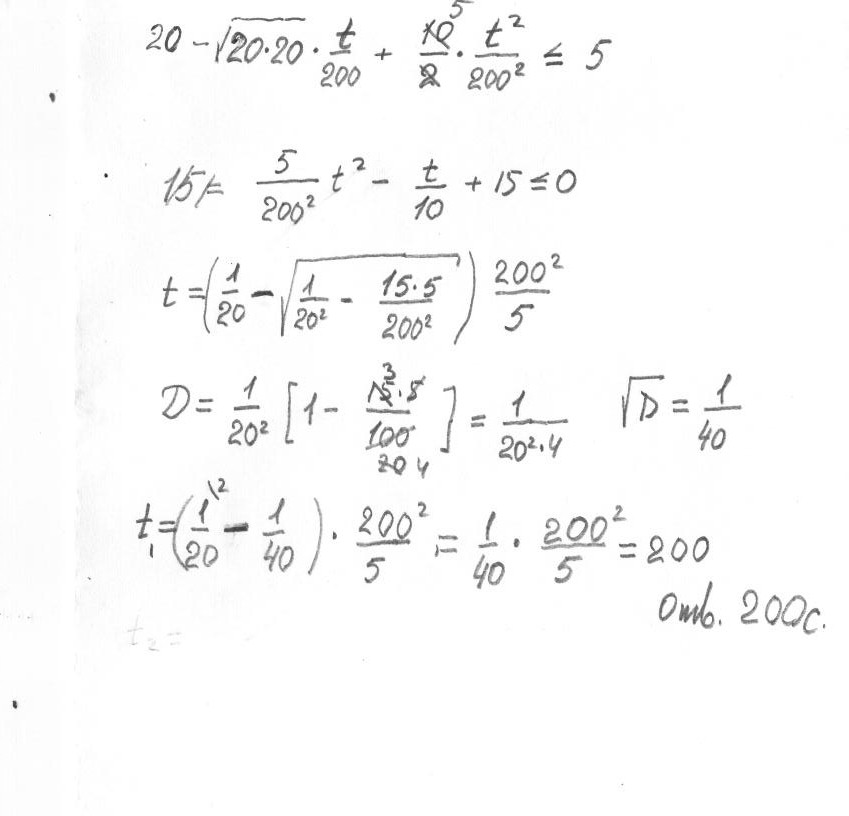 20 - √(20·20) · t/200 + 10/2 5 · t²/200² ≤ 5
15/= 5/200² t² - t/10 + 15 ≤ 0
t = (1/20 - √(1/20² - 15·5/200²)) 200²/5
D = 1/20² [1 - 15·5/100 3 20 4] = 1/(20²·4) √D = 1/40
t₁ = (1/20 \2 - 1/40) · 200²/5 = 1/40 · 200²/5 = 200
Отв. 200с.
t₂ =